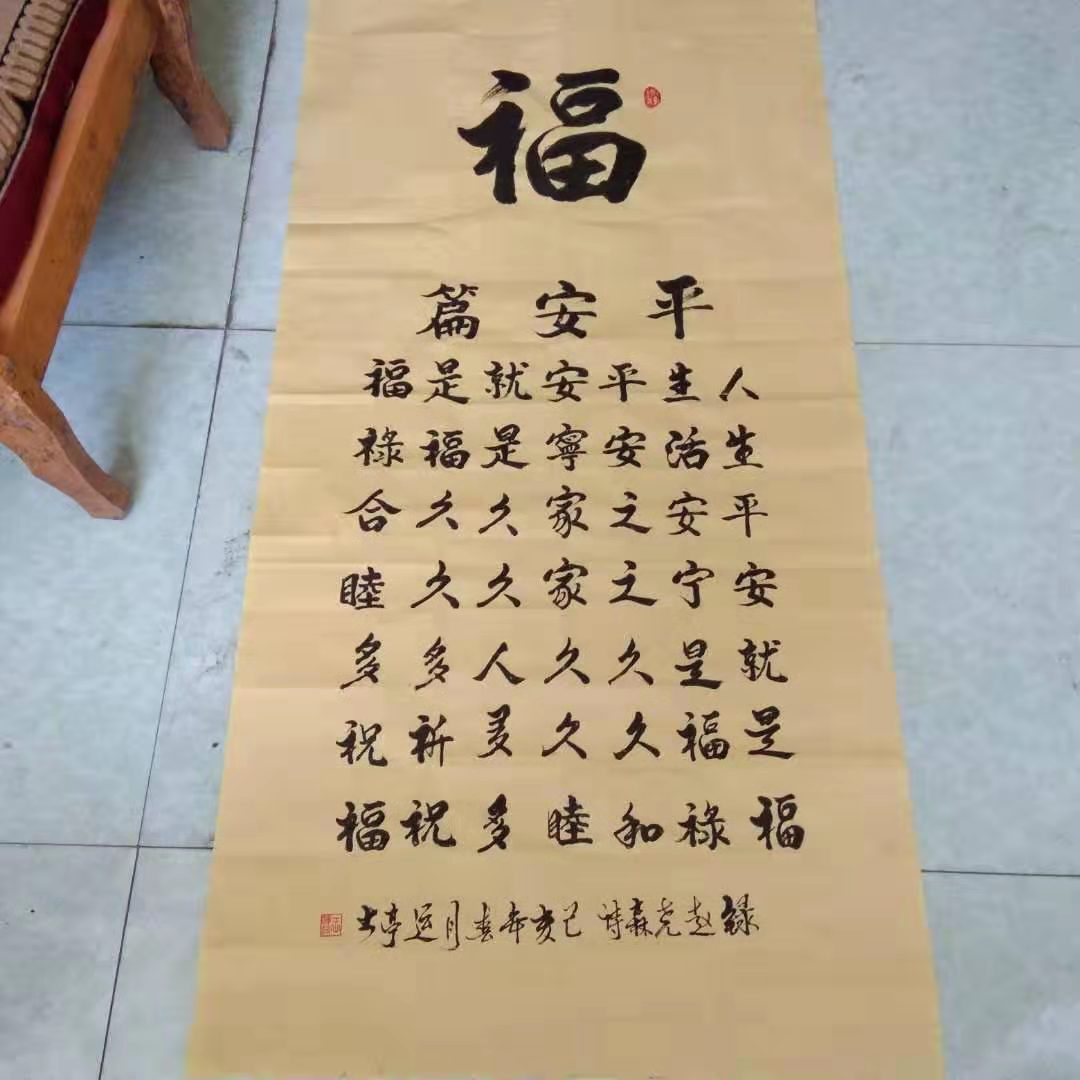 福
平安篇
人生平安就是福
生活安寧是福祿
平安之家久久合
安宁之家久久睦
就是久久人多多
是福久久多祈祝
福祿和睦多祝福
録赵森诗 己亥年春月运亭书